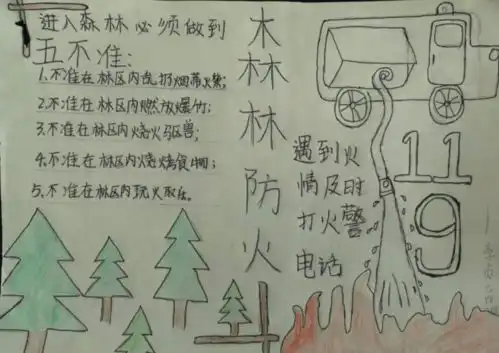 进入森林必须做到
五不准:
1.不准在林区内乱扔烟蒂火柴;
2.不准在林区内燃放爆竹;
3.不准在林区内烧火驱兽;
4.不准在林区内烧烤食物;
5.不准在林区内玩火取乐。
木林林防火
遇到火
情及时
打火警
电话
119